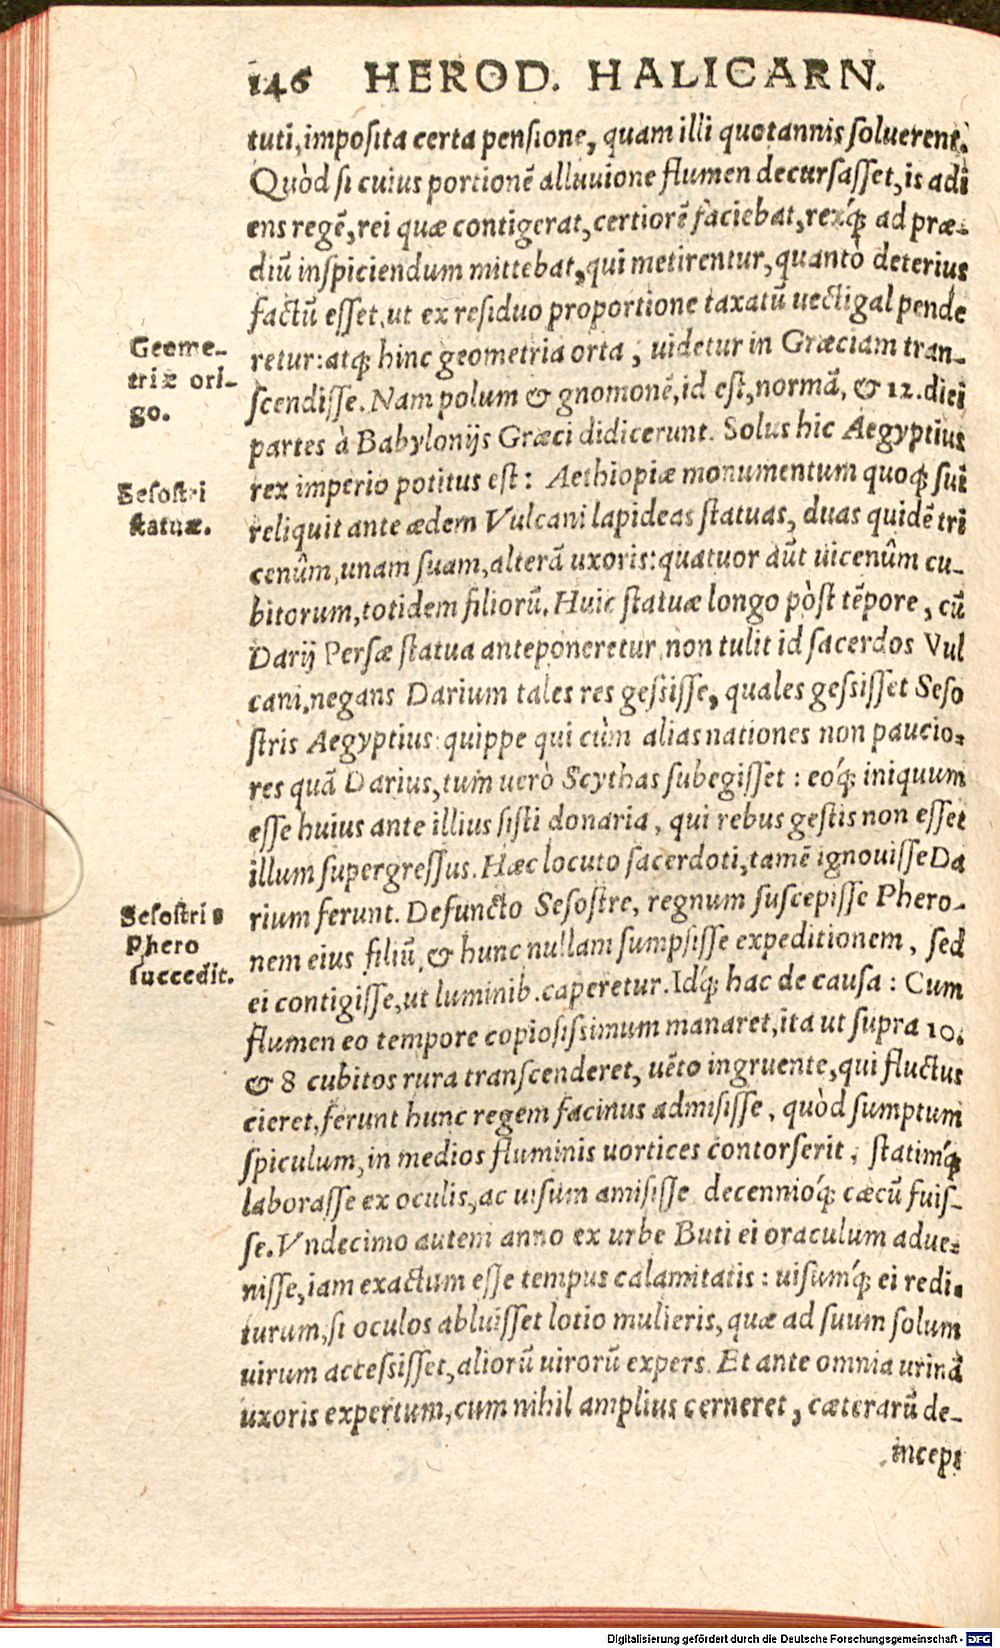 146 HEROD. HALICARN.
tuti, imposita certa pensione, quam illi quotannis soluerent.
Quòd si cuius portionẽ alluuione flumen decursasset, is adi
ens regẽ, rei quæ contigerat, certiorẽ faciebat, rexq́; ad præ-
diũ inspiciendum mittebat, qui metirentur, quantò deterius
factũ esset, ut ex residuo proportione taxatũ uectigal pende
retur: atq; hinc geometria orta, uidetur in Græciam tran-
Geome-
triæ ori-
go.
scendisse. Nam polum & gnomonẽ, id est, normã, & 12. diei
partes à Babylonijs Græci didicerunt. Solus hic Aegyptius
rex imperio potitus est: Aethiopiæ monumentum quoq; sui
Sesostri
statuæ.
reliquit ante ædem Vulcani lapideas statuas, duas quidẽ tri
cenûm, unam suam, alterã uxoris: quatuor aũt uicenûm cu-
bitorum, totidem filiorũ. Huic statuæ longo pòst tẽpore, cũ
Darij Persæ statua anteponeretur, non tulit id sacerdos Vul
cani, negans Darium tales res gessisse, quales gessisset Seso
stris Aegyptius: quippe qui cùm alias nationes non paucio-
res quã Darius, tum uerò Scythas subegisset: eoq́; iniquum
esse huius ante illius sisti donaria, qui rebus gestis non esset
illum supergressus. Hæc locuto sacerdoti, tamẽ ignouisse Da
rium ferunt. Defuncto Sesostre, regnum suscepisse Phero-
Sesostris
Phero
succedit.
nem eius filiũ, & hunc nullam sumpsisse expeditionem, sed
ei contigisse, ut luminib. caperetur. Idq́; hac de causa: Cum
flumen eo tempore copiosissimum manaret, ita ut supra 10.
& 8 cubitos rura transcenderet, uẽto ingruente, qui fluctus
cieret, ferunt hunc regem facinus admisisse, quòd sumptum
spiculum, in medios fluminis uortices contorserit, statimq́;
laborasse ex oculis, ac uisum amisisse, decennioq́; cæcũ fuis-
se. Vndecimo autem anno ex urbe Buti ei oraculum adue-
nisse, iam exactum esse tempus calamitatis: uisumq́; ei redi-
turum, si oculos abluisset lotio mulieris, quæ ad suum solum
uirum accessisset, aliorũ uirorũ expers. Et ante omnia urinã
uxoris expertum, cum nihil amplius cerneret, cæterarũ de-
inceps
Digitalisierung gefördert durch die Deutsche Forschungsgemeinschaft - DFG